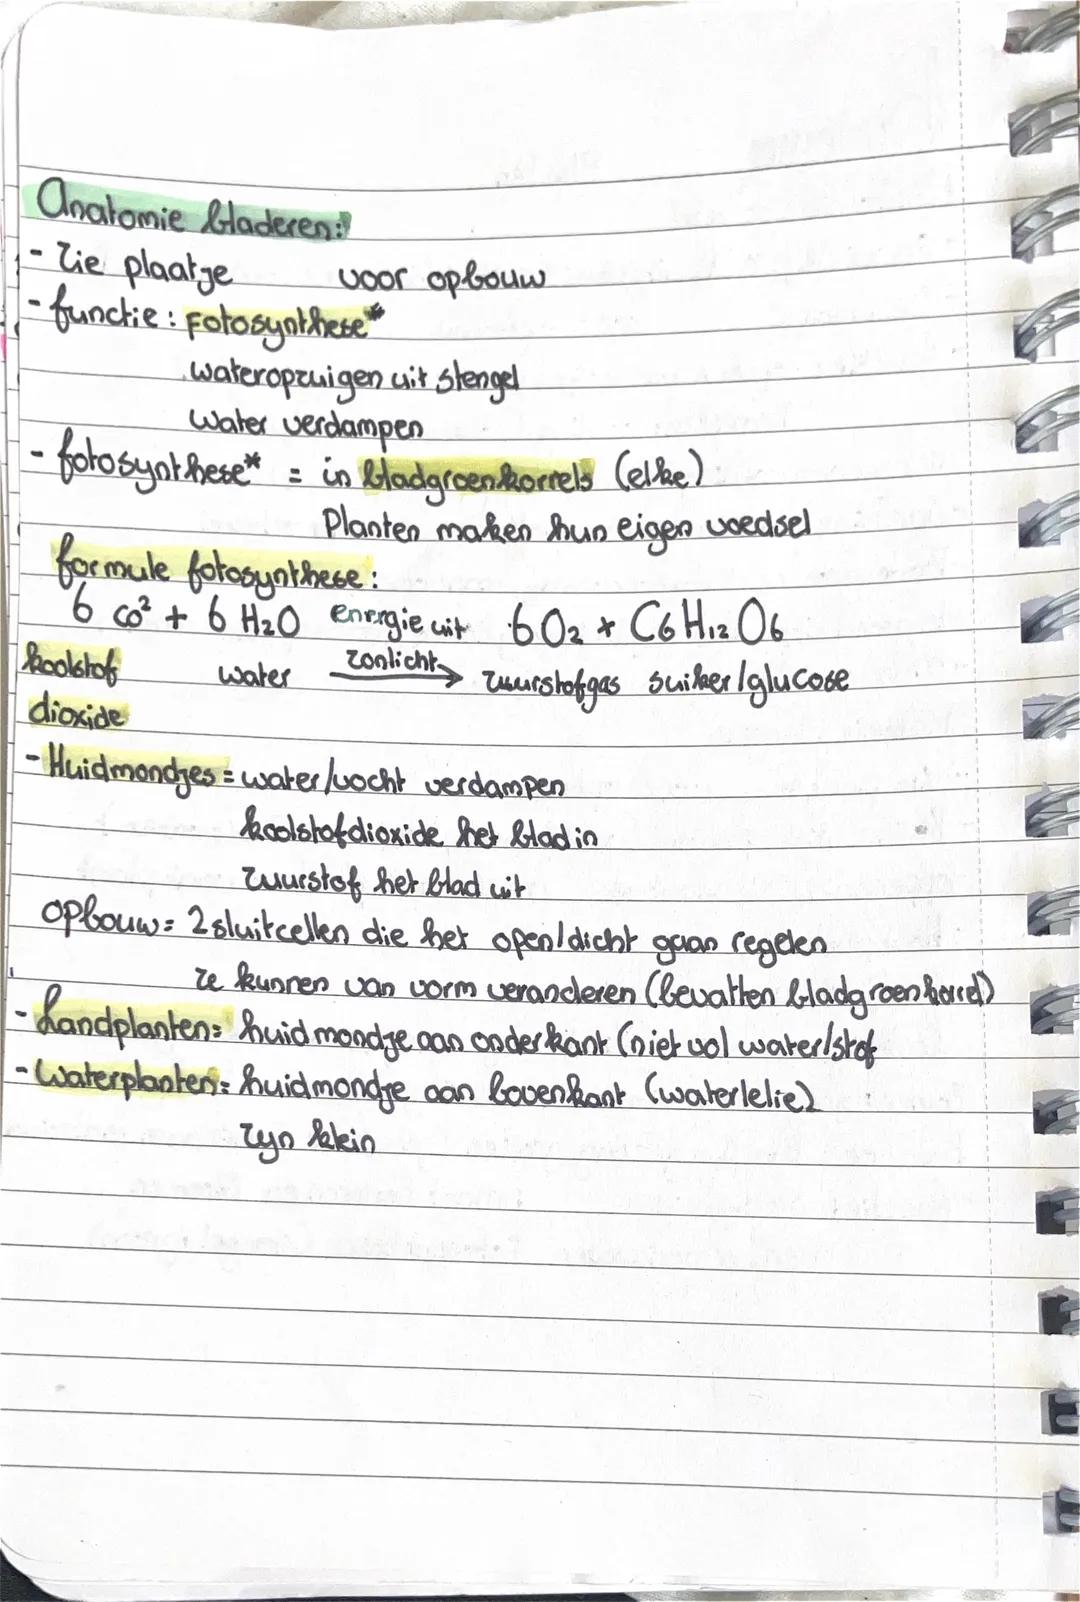 Anatomie bladeren:
- Zie plaatje voor opbouw
- functie: Fotosynthese*
wateropzuigen uit stengel
Water verdampen
- fotosynthese* = in bladgroenkorrels (elke)
Planten maken hun eigen voedsel
formule fotosynthese:
6 CO² + 6 H2O energie uit 6O2 + C6H12O6
koolstof water zonlicht → zuurstofgas suiker/glucose
dioxide
- Huidmondjes = water/vocht verdampen
koolstofdioxide het blad in
zuurstof het blad uit
opbouw = 2 sluitcellen die het open/dicht gaan regelen
ze kunnen van vorm veranderen (bevatten bladgroenkorrel)
- Landplanten = huidmondje aan onderkant (niet vol water/stof
- Waterplanten = huidmondje aan bovenkant (waterlelie)
zijn klein